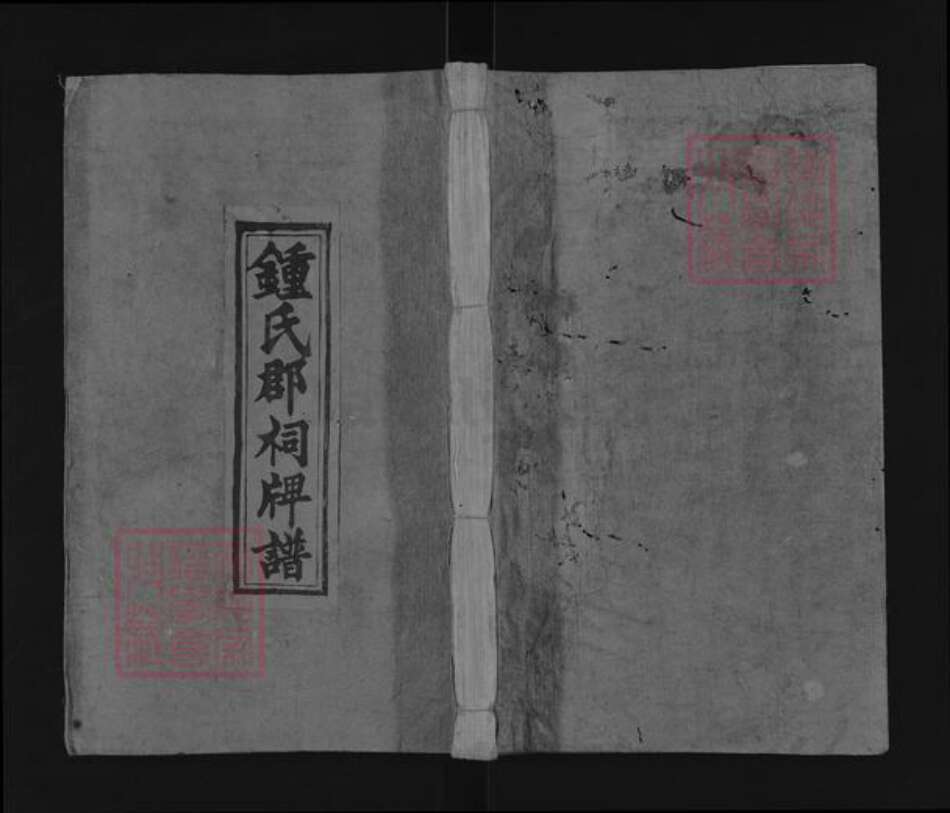 鍾氏郡祠牌譜